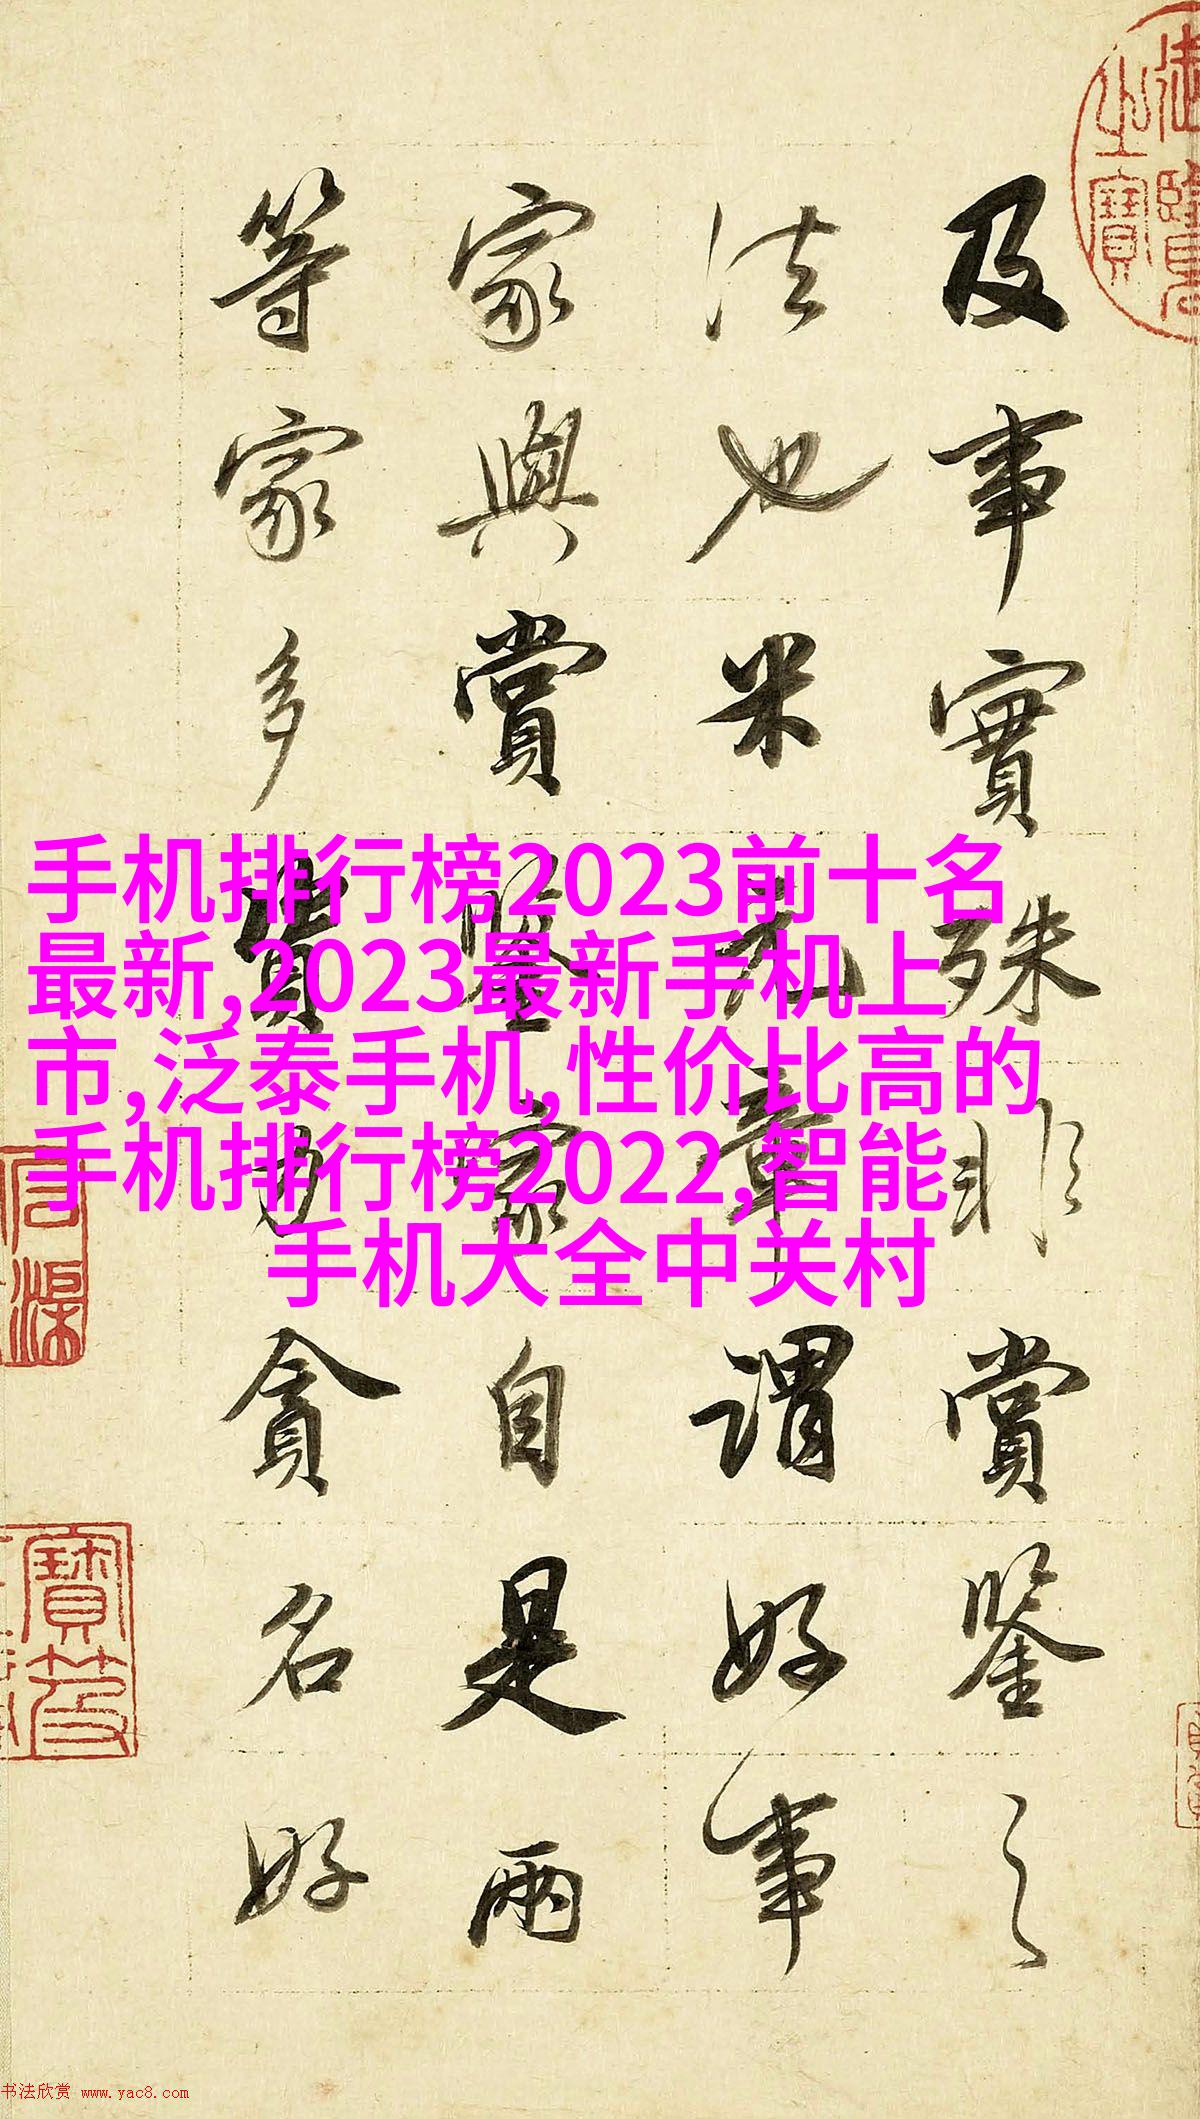 及事實殊非賞鑒之
法也米元章謂好事
家與賞鑒家自是兩
等家多資力貪名好
手机排行榜2023前十名
最新,2023最新手机上
市,泛泰手机,性价比高的
手机排行榜2022,智能
手机大全中关村
书法欣赏 www.yac8.com